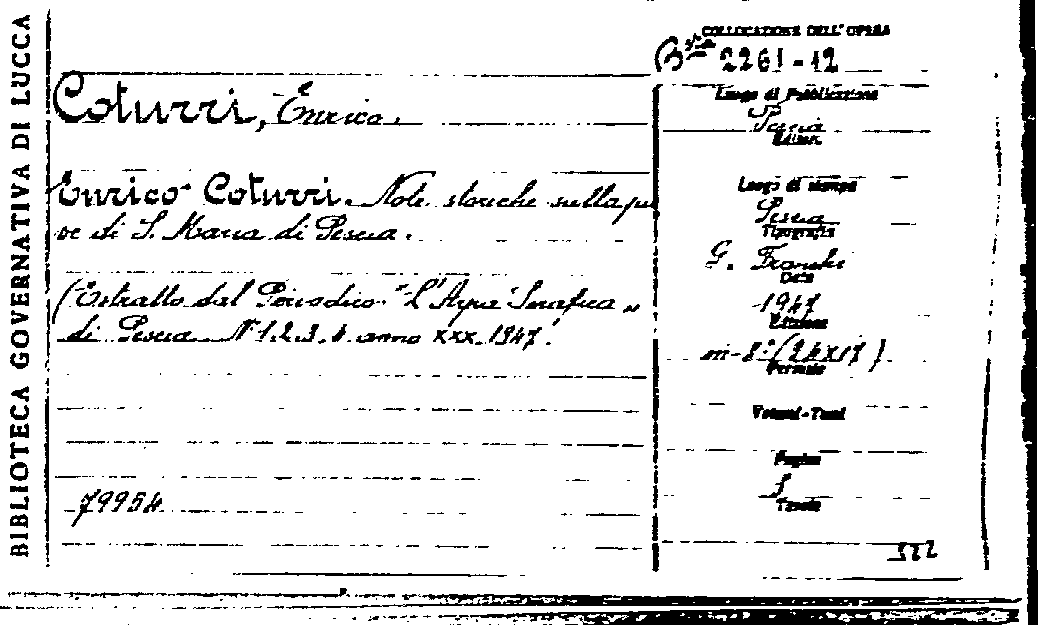 BIBLIOTECA GOVERNATIVA DI LUCCA
COLLOCAZIONE DELL'OPERA
Bsta 2261-12
Coturri, Enrico.
Enrico Coturri. Note storiche sulla pie
ve di S. Maria di Pescia.
(Estratto dal Periodico "L'Apua Serafica"
di Pescia N. 1.2.3.4. anno XXX. 1947.
79954
Luogo di Pubblicazione
Pescia
Editore
Luogo di stampa
Pescia
Tipografia
G. Franchi
Data
1947
Edizione
in-8°(24x17)
Formato
Volumi-Tomi
Pagine
Tavole
522